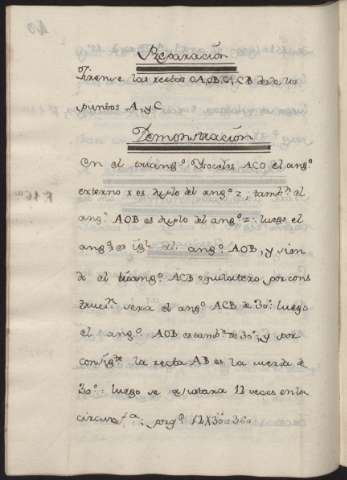 Preparación
Tirense las rectas OA, OB, ACB desde los
puntos A, y C
Demonstración
En el triang.º Ysosceles ACO el ang.º
externo x es duplo del ang.º z, tamb.n el
ang.º AOB es duplo del ang.º z: luego el
ang.º x es igl. al ang.º AOB, y sien
do el triang.º ACB equilatero por cons
trucn. sera el ang.º ACB de 30º: luego
el ang.º AOB es tamb.n de 30º, y por
consigte. la recta AB es la cuerda de
30º: luego se ajustara 12 veces en la
circunf.a: porq.e 12X30=360